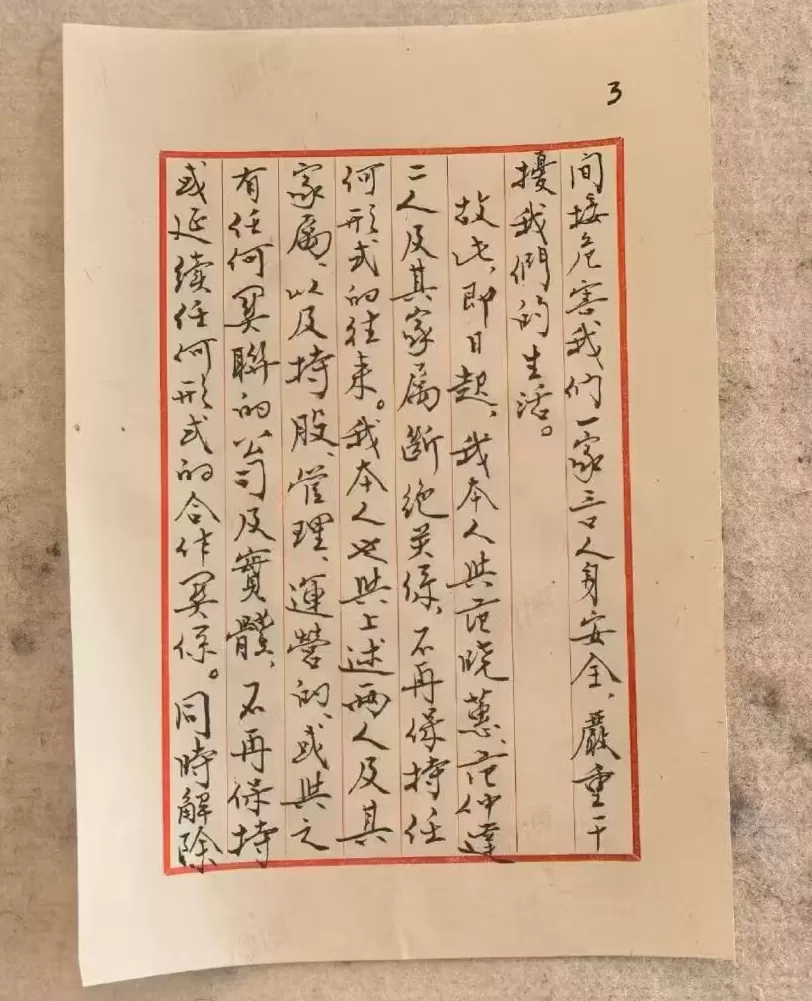 3
间接危害我们一家三口人身安全、嚴重干
擾我們的生活。
故此,即日起、我本人與范晓蕙、范仲達
二人及其家属断绝关係、不再保持任
何形式的往来。我本人也與上述两人及其
家属、以及持股、管理、運营的、或與之
有任何関聯的公司及實體、不再保持
或延续任何形式的合作関係。同時解除